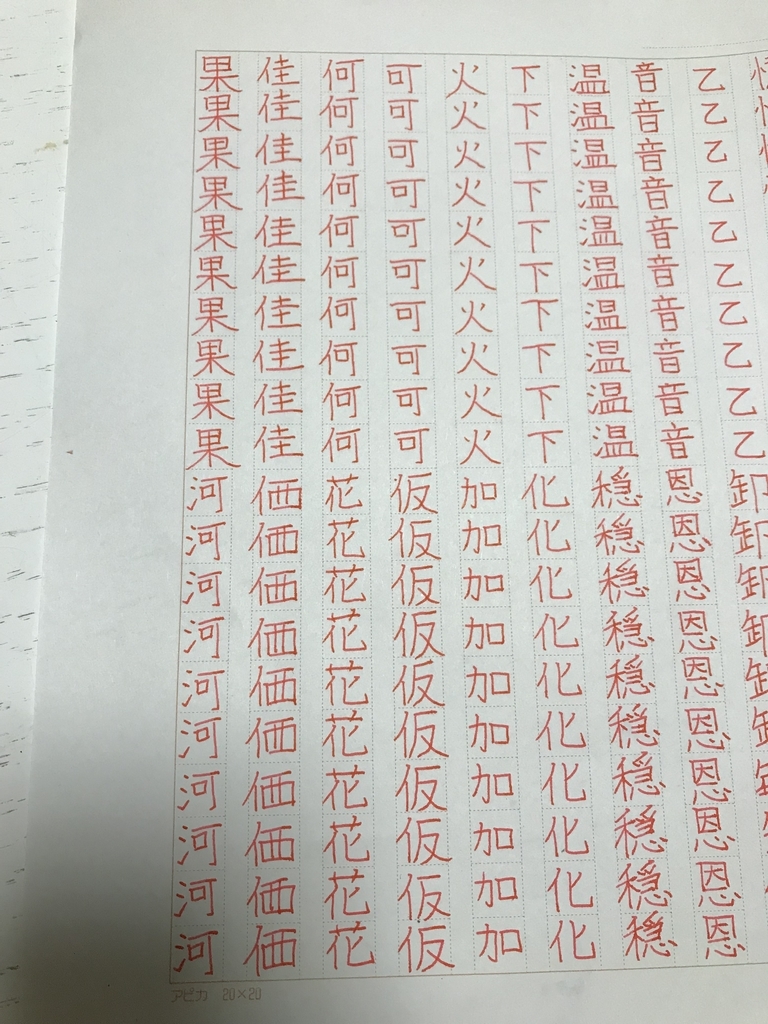 乙乙乙乙乙乙乙乙乙乙卸卸卸卸
音音音音音音音音音音恩恩恩恩恩恩恩恩恩恩
温温温温温温温温温温穏穏穏穏穏穏穏穏穏穏
下下下下下下下下下下化化化化化化化化化化
火火火火火火火火火火加加加加加加加加加加
可可可可可可可可可可仮仮仮仮仮仮仮仮仮仮
何何何何何何何何何何花花花花花花花花花花
佳佳佳佳佳佳佳佳佳佳価価価価価価価価価価
果果果果果果果果果果河河河河河河河河河河
アピカ 20×20